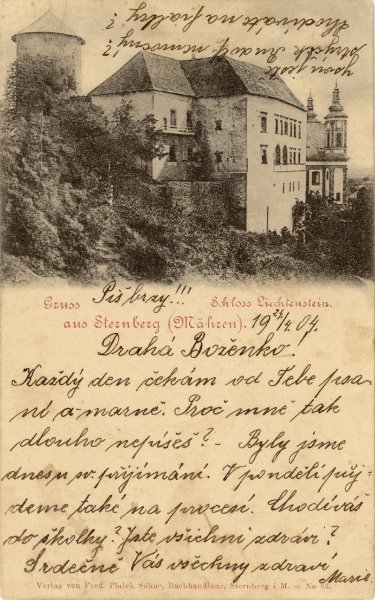 Gruss
aus Sternberg (Mähren).
Schloss Liechtenstein.
Piš brzy!!!
19 24/4 04.
Drahá Boženko!
Každý den čekám od Tebe psa-
ní a marně. Proč mně tak
dlouho nepíšeš? - Byly jsme
dnes u sv. přijímání. V pondělí půj-
deme take na procesí. Chodíváš
do školky? Jste všichni zdrávi?
Srdečně Vás všechny zdraví
Marie.
strýček
němocný?
Chodíváte na fialky?
Verlag von Ferd. Pialek Söhne, Buchhandlung, Sternberg i. M. — No 55.